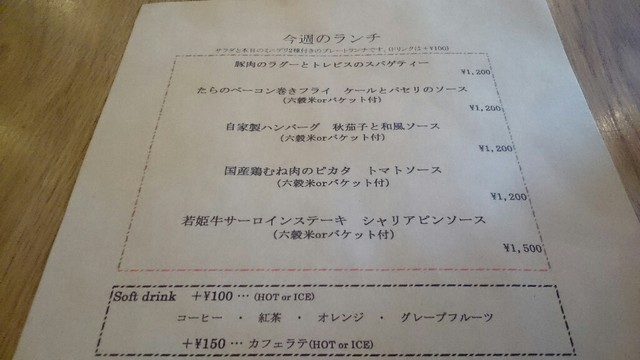 今週のランチ
サラダと本日のミニデリ2種付きのプレートランチです。(ドリンクは＋¥100)
豚肉のラグーとトレビスのスパゲティー
¥1,200
たらのベーコン巻きフライ　ケールとパセリのソース
(六穀米orバケット付)
¥1,200
自家製ハンバーグ　秋茄子と和風ソース
(六穀米orバケット付)
¥1,200
国産鶏むね肉のピカタ　トマトソース
(六穀米orバケット付)
¥1,200
若姫牛サーロインステーキ　シャリアピンソース
(六穀米orバケット付)
¥1,500
Soft drink　＋¥100 … (HOT or ICE)
コーヒー ・ 紅茶 ・ オレンジ ・ グレープフルーツ
＋¥150 … カフェラテ(HOT or ICE)